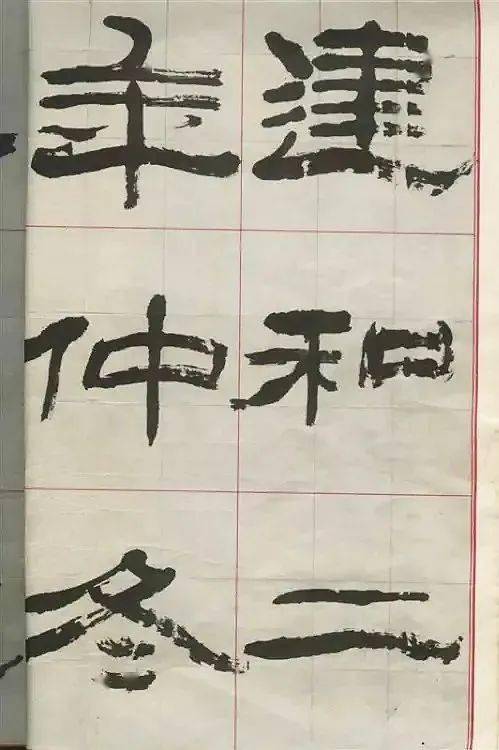 建和二
年仲冬